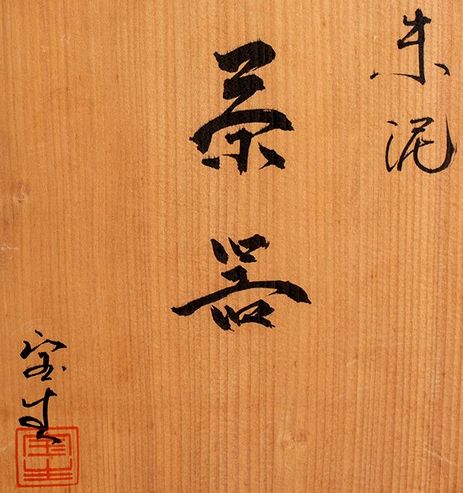 朱泥
茶器
宝生